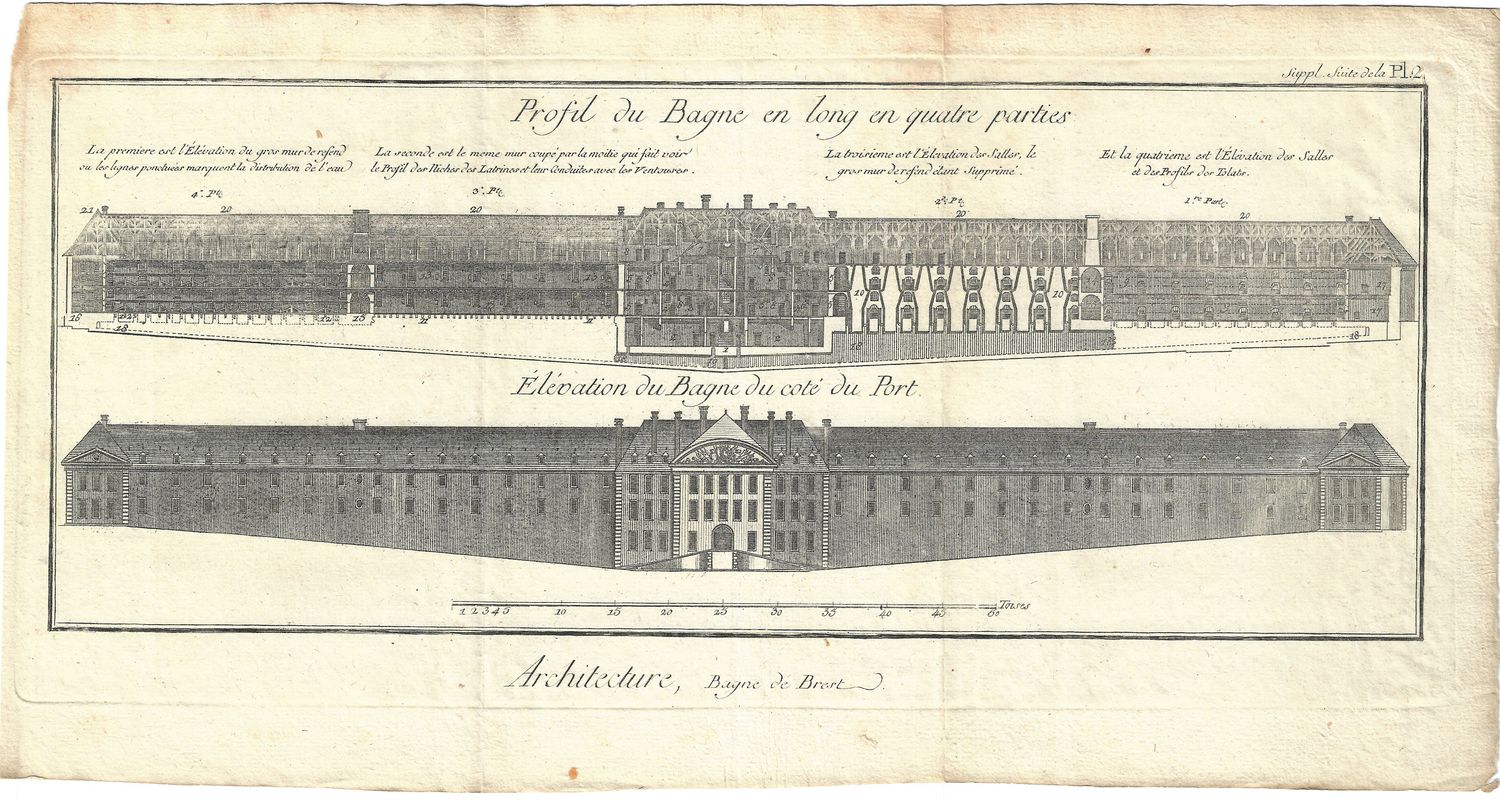 Suppl. Suite de la Pl. 2.
Profil du Bagne en long en quatre parties
La premiere est l'Élévation du gros mur de refend
ou les lignes ponctuées marquent la distribution de l'eau
La seconde est le meme mur coupé par la moitié qui fait voir
le Profil des Niches des Latrines et leur Conduites avec les Ventouses.
La troisieme est l'Élevation des Salles, le
gros mur de refend étant Supprimé.
Et la quatrieme est l'Élévation des Salles
et des Profils des Tolats.
4e. Ptie.
3e. Ptie.
2e. Pt.
1re. Partie.
21 20 20 20 20
10 10
16 12 12 15 11 11 2 1 2 17 17
18 18 18
Élévation du Bagne du coté du Port.
1 2 3 4 5 10 15 20 25 30 35 40 45 50 Toises
Architecture, Bagne de Brest.